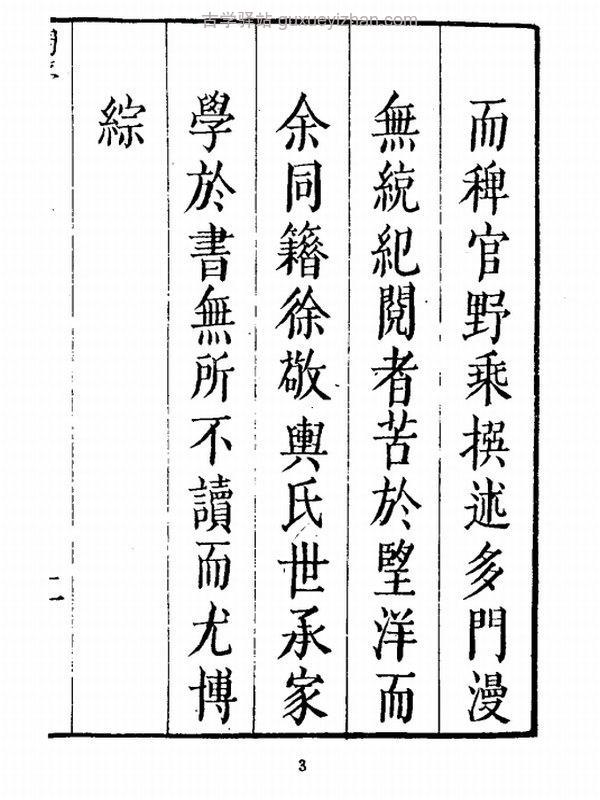 古学驿站 guxueyizhan.com
而稗官野乘撰述多門漫
無統紀閱者苦於朢洋而
余同籍徐敬輿氏世承家
學於書無所不讀而尤博
綜
二
3